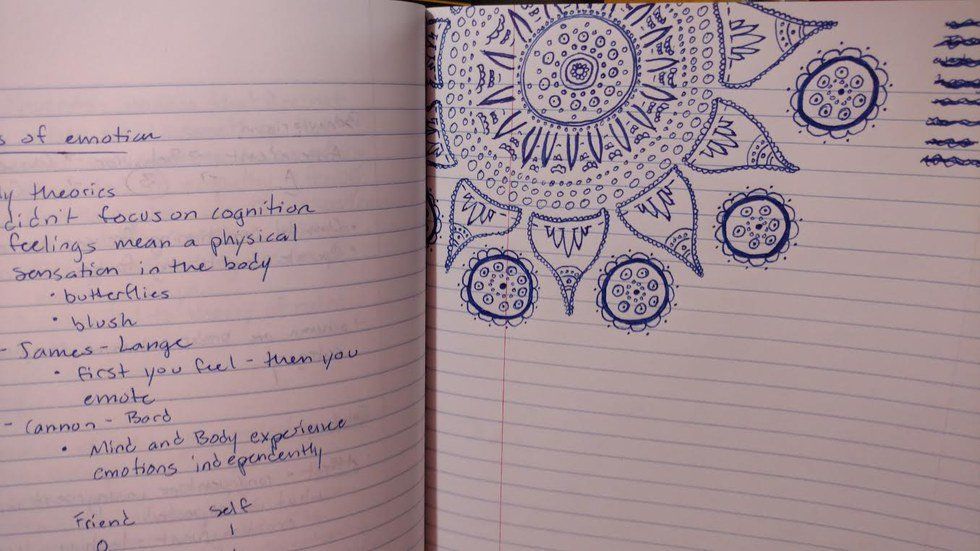 s of emotion
y theories
didn't focus on cognition
feelings mean a physical
sensation in the body
• butterflies
• blush
- James-Lange
• first you feel - then you
emote
- Cannon-Bard
• Mind and Body experience
emotions independently
Friend Self
0 1